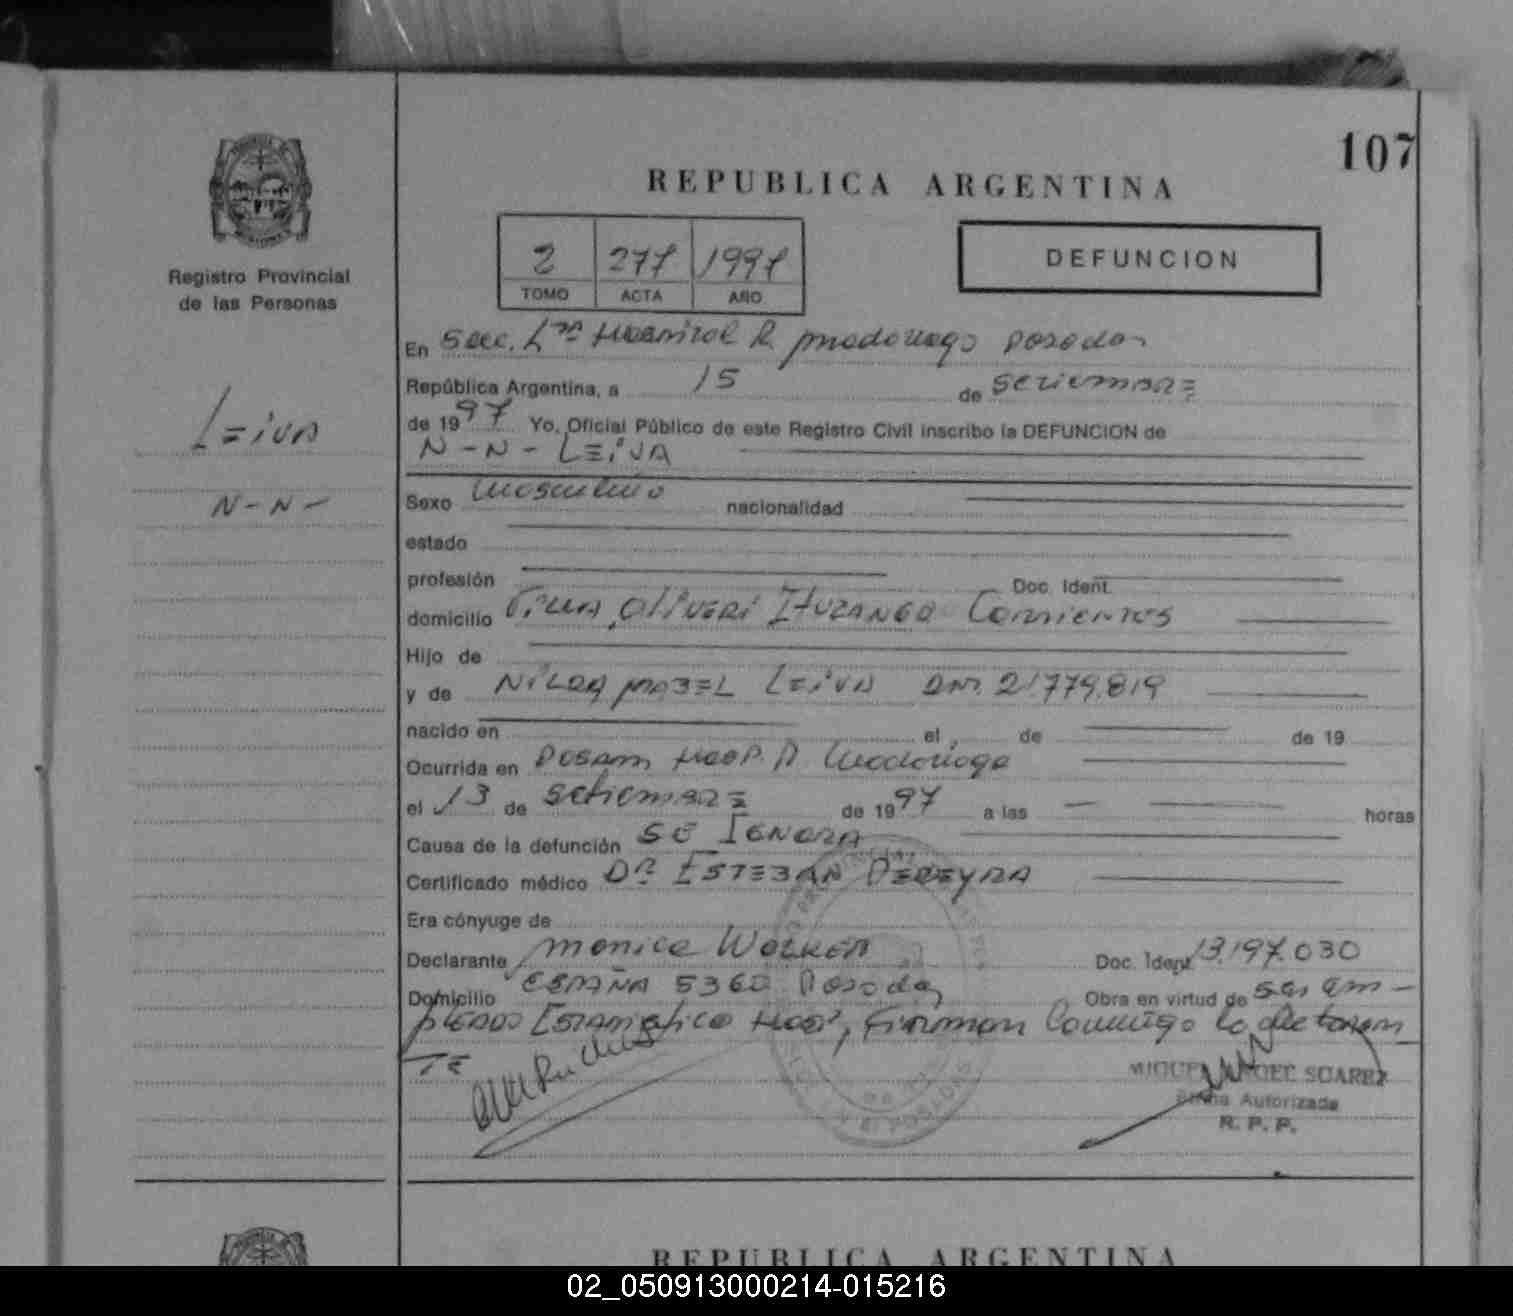 107
REPUBLICA ARGENTINA
2 277 1997
TOMO ACTA AÑO
DEFUNCION
Registro Provincial
de las Personas
LEIVA
N-N-
En Secc. 1ra Hospital R. Madariaga Posadas
República Argentina, a 15 de Setiembre
de 1997 Yo, Oficial Público de este Registro Civil inscribo la DEFUNCION de
N-N- LEIVA
Sexo Masculino nacionalidad
estado
profesión Doc. Ident.
domicilio Villa Oliveri Ituzango Corrientes
Hijo de
y de Nilda Mabel Leiva DNI. 21.779.819
nacido en el de de 19
Ocurrida en Posadas Hosp. R Madariaga
el 13 de Setiembre de 1997 a las — horas
Causa de la defunción SE IGNORA
Certificado médico Dr. ESTEBAN PEREYRA
Era cónyuge de
Declarante Monica Doc. Ident. 13.197.030
Domicilio España 5360 Posadas Obra en virtud de ser em-
pleado Estadistico Hosp, Firman Conmigo la declaran
TE
MIGUEL ANGEL SUAREZ
Firma Autorizada
R. P. P.
REPUBLICA ARGENTINA
02_050913000214-015216